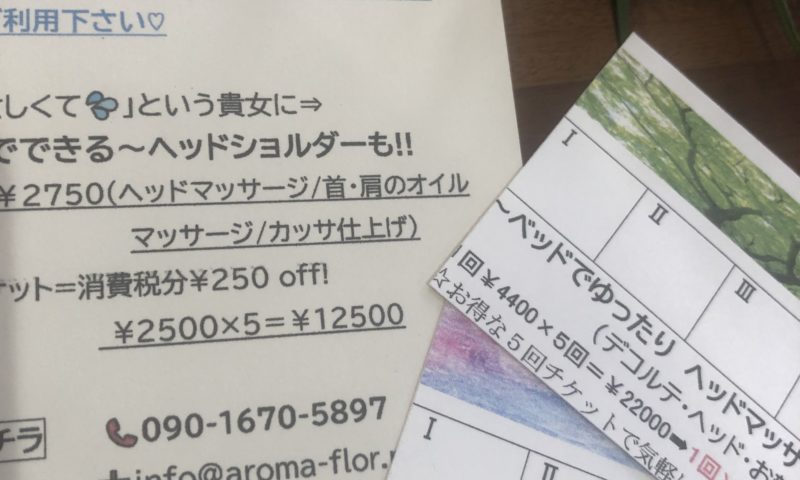 ご利用下さい♡
しくて💦」という貴女に⇒
でできる～ヘッドショルダーも!!
￥2750(ヘッドマッサージ/首・肩のオイル
マッサージ/カッサ仕上げ)
ケット=消費税分¥250 off!
￥2500×5=￥12500
チラ
📞090-1670-5897
info@aroma-flor.
I
II
III
～ベッドでゆったり ヘッドマッサ
(デコルテ・ヘッド・お
1回￥4400×5回=￥22000➡1回
☆お得な5回チケットで気軽
I
II